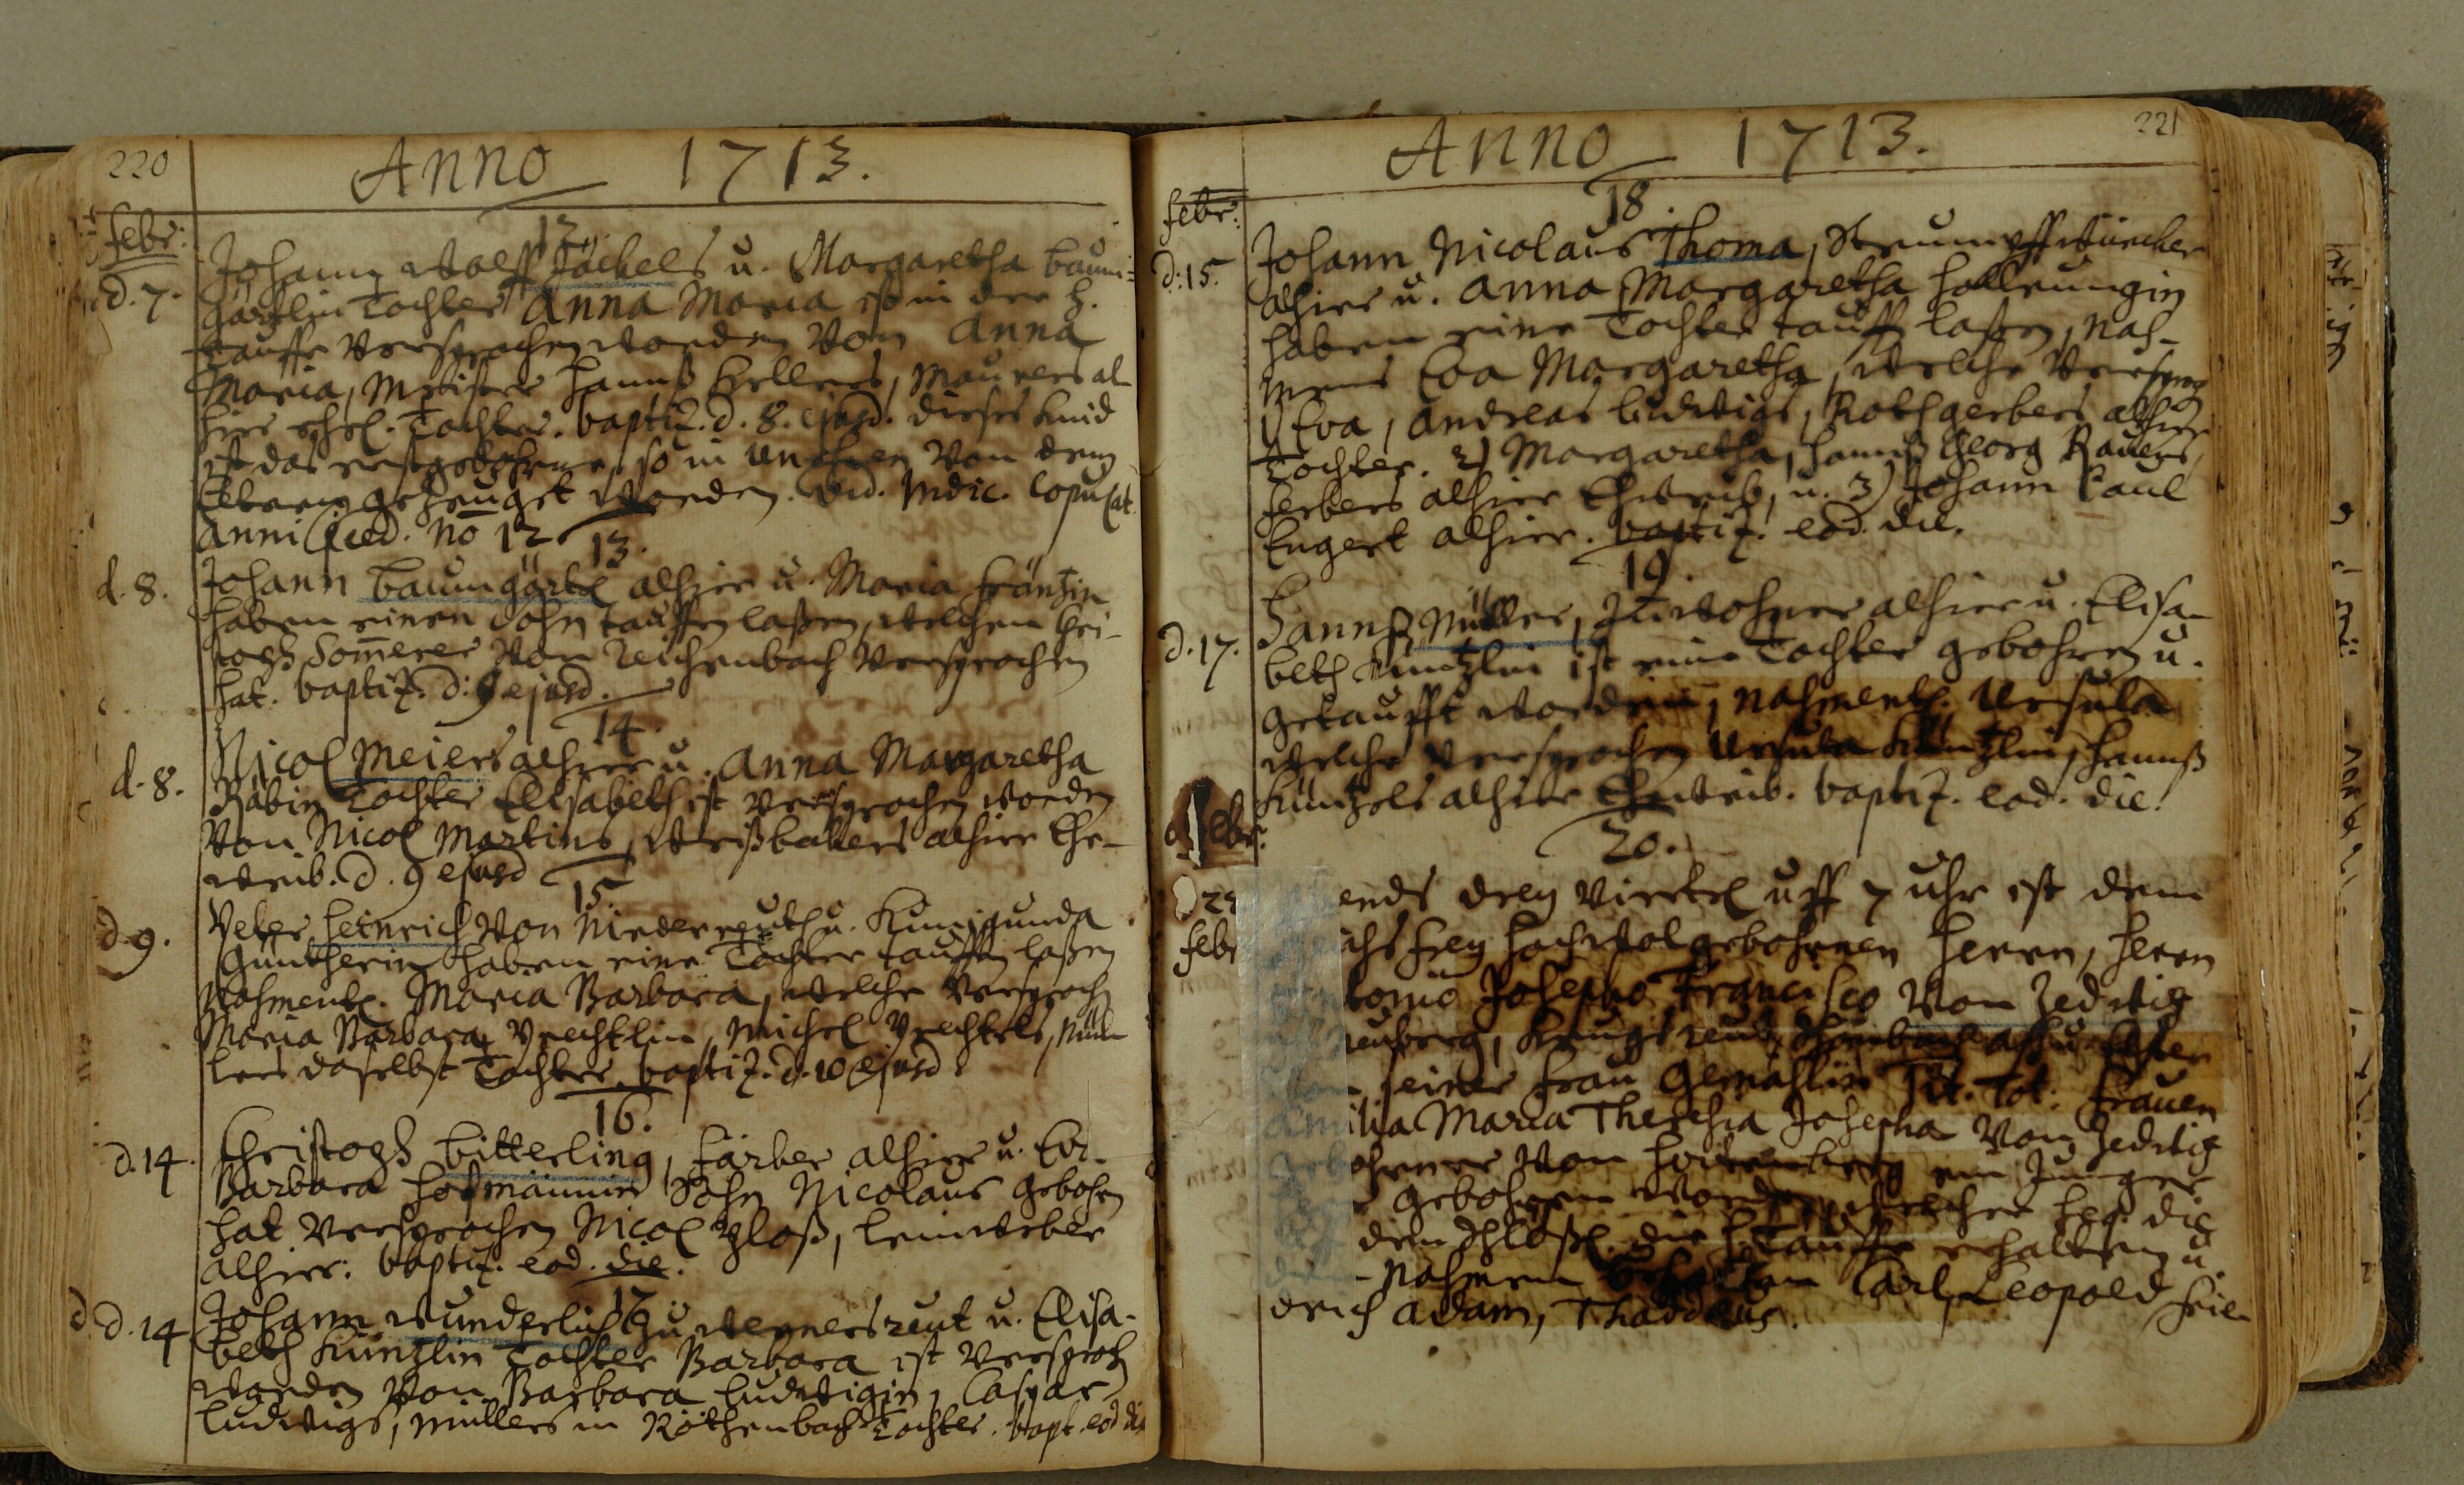 220
Anno 1713.
Febr:
12.
d. 7.
Johann Wolff Jäckels u. Margaretha Baum=
gärtlin Tochter Anna Maria ist in der H.
Tauffe versprochen worden von Anna
Maria, Meister Hannß Hellers, Maurers al-
hier ehel. Tochter. baptiz. d. 8. ejusd. dieses Kind
ist das erstgebohrne, so in Unehren von den
Eltern gezeuget worden. vid. Indic. Copulat.
Anni No 12
13.
d. 8.
Johann Baumgärtel alhier u. Maria Fräntzin
haben einen Sohn tauffen laßen, welchen Chri-
stoph Som̅erer von Reichenbach versprochen
hat. baptiz. d: 9 ejusd.
14.
d. 8.
Nicol Meiers alhier u. Anna Margaretha
Räbin Tochter Elisabeth ist versprochen worden
von Nicol Martins, Weißbeckers alhier Ehe-
weib. d. 9 ejusd
15.
d. 9.
Peter Heinrich von Niederreuth u. Kunigunda
Güntherin haben eine Tochter tauffen laßen
Nahmentl. Maria Barbara, welche versproch
Maria Barbara, Michel Mül-
lers daselbst Tochter. baptiz. d. 10 ejusd
16.
d. 14.
Christoph Bitterling, Färber alhier u. Ev.
Barbara Hofmännin Sohn Nicolaus gebohrn
hat versprochen Nicol Ploß, Leinweber
alhier. baptiz. eod. die.
17.
d. 14
Johann Wunderlich zu Wernersreut u. Elisa-
beth Küntzlin Tochter Barbara ist versproch
worden von Barbara Ludwigin, Caspar
Ludwigs, Müllers in Röthenbach Tochter. bapt. eod die
221
Anno 1713.
Febr:
18.
d: 15.
Johann Nicolaus Thoma, Strumpffwürcker
alhier u. Anna Margaretha
haben eine Tochter tauffn laßen, Nah-
mens Eva Margaretha, welche versproch
1) Eva, Andreas Ludwigs, Rothgerbers alhier
Tochter. 2) Margaretha, Hannß Georg
Ferbers alhier Eheweib, u. 3) Johann Paul
Engert alhier. baptiz. eod. die.
19.
d. 17.
Hannß Müller, Inwohner alhier u. Elisa-
beth Küntzlin ist eine Tochter gebohren u.
getaufft worden, Nahmentl. Ursula
welche versprochen Ursula Küntzlin, Hannß
Küntzels alhier Eheweib. baptiz. eod. die.
Febr.
20.
Febr
ends drey Viertel uff 7 uhr ist dem
chs frey Hochwolgebohrnen Herrn, Herrn
tonio Josepho Francisco von Zedwitz
seiner Frau Gemahlin Tit. Tot. Frauen
Maria Theresia Josepha von Zedwitz
ohrner von ein Junger
gebohren worden, welcher die
den Schloßl. die H. Tauffe erhalten u.
Nahmen Carl, Leopold Frie-
drich Adam, Thaddäus.